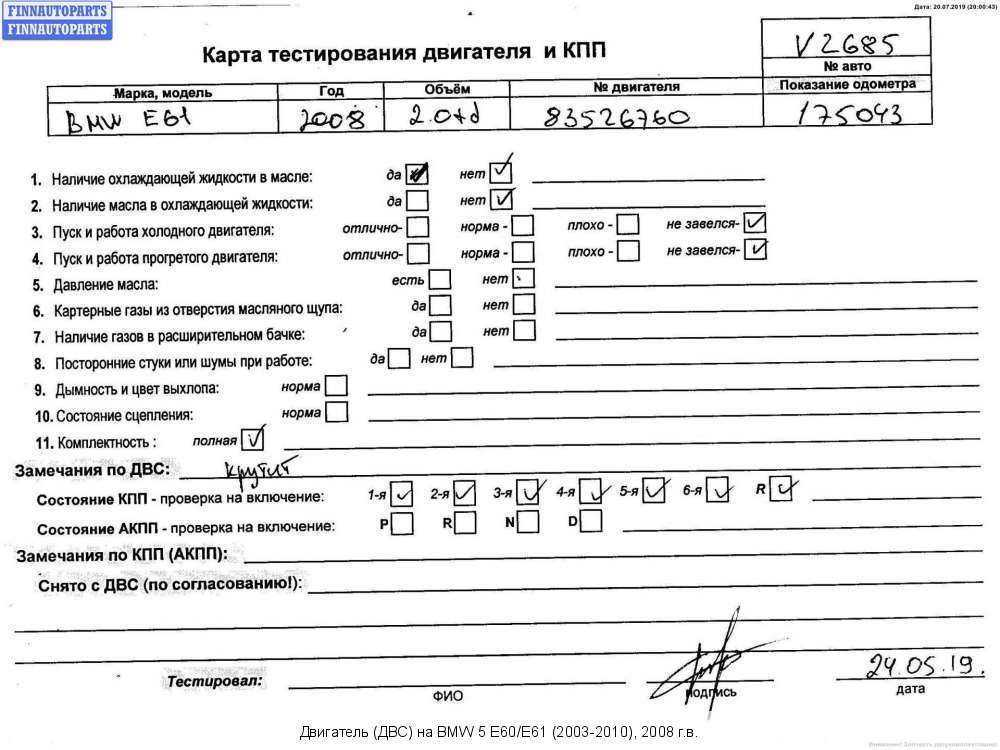 FINNAUTOPARTS
FINNAUTOPARTS
Дата: 20.07.2019 (20:00:43)
Карта тестирования двигателя и КПП
V2685
№ авто
Марка, модель Год Объём № двигателя Показание одометра
BMW E61 2008 2.0td 83526760 175043
1. Наличие охлаждающей жидкости в масле: да нет
2. Наличие масла в охлаждающей жидкости: да нет
3. Пуск и работа холодного двигателя: отлично- норма - плохо - не завелся-
4. Пуск и работа прогретого двигателя: отлично- норма - плохо - не завелся-
5. Давление масла: есть нет
6. Картерные газы из отверстия масляного щупа: да нет
7. Наличие газов в расширительном бачке: да нет
8. Посторонние стуки или шумы при работе: да нет
9. Дымность и цвет выхлопа: норма
10. Состояние сцепления: норма
11. Комплектность : полная
Замечания по ДВС: крутит
Состояние КПП - проверка на включение: 1-я 2-я 3-я 4-я 5-я 6-я R
Состояние АКПП - проверка на включение: P R N D
Замечания по КПП (АКПП):
Снято с ДВС (по согласованию!):
Тестировал: 24.05.19.
ФИО подпись дата
Двигатель (ДВС) на BMW 5 E60/E61 (2003-2010), 2008 г.в.